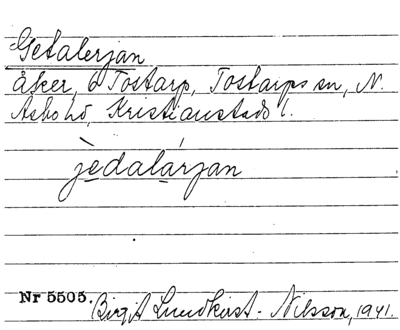 Getalerjan
Åker, 6 Tostarp, Tostarps sn, N.
Asbo hd, Kristianstads l.
jèdalárjan
Nr 5505. Birgit Lundkvist-Nilsson, 1941.